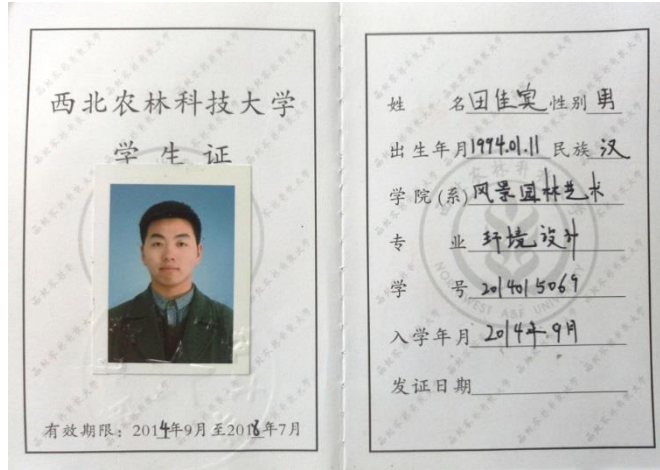 西北农林科技大学
学生证
有效期限：2014年9月至2018年7月
姓 名 田佳宾 性别 男
出生年月 1994.01.11 民族 汉
学院(系) 风景园林艺术
专 业 环境设计
学 号 2014015069
入学年月 2014年9月
发证日期
NORTHWEST A&F UNIVERSITY